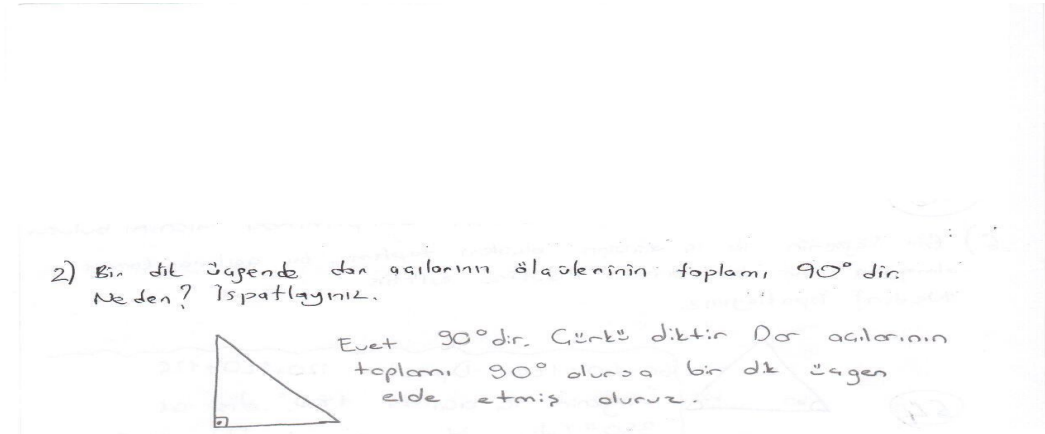 2) Bir dik üçgende dar açılarının ölçülerinin toplamı 90° dir.
Neden? İspatlayınız.
Evet 90° dir. Çünkü diktir Dar açılarının
toplamı 90° olursa bir dik üçgen
elde etmiş oluruz.